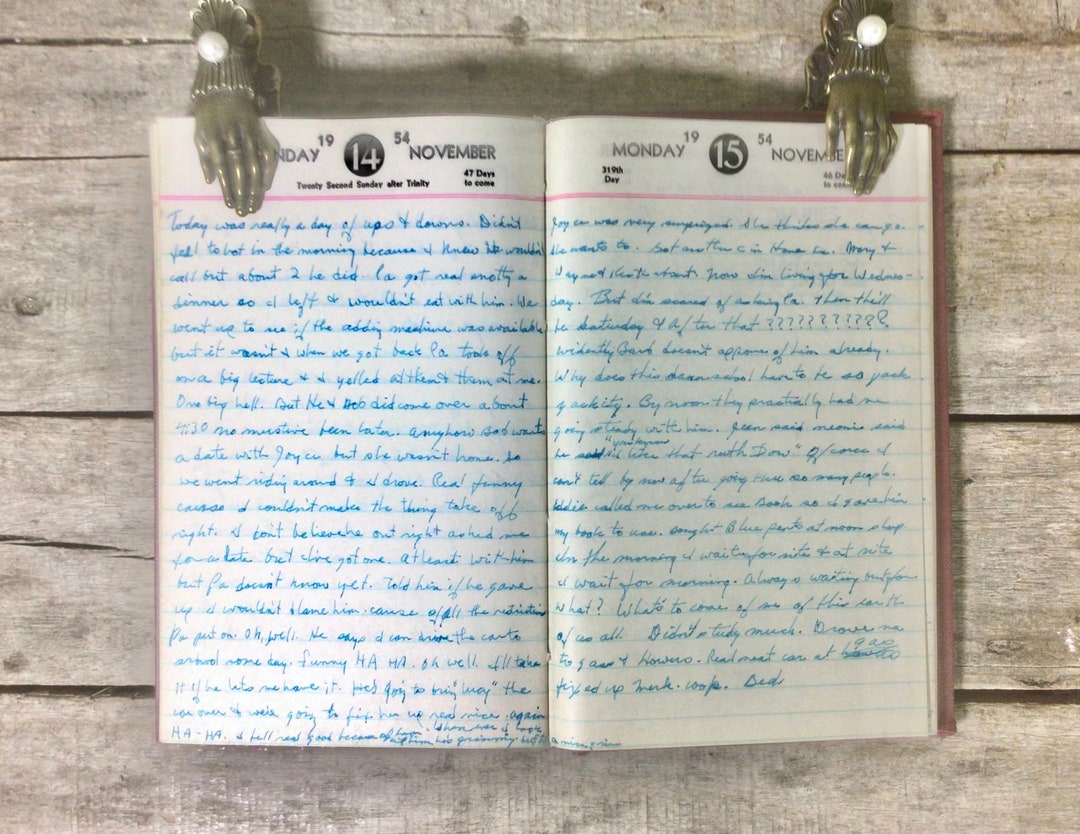 NDAY 19 14 54 NOVEMBER
Twenty Second Sunday after Trinity
47 Days to come
Today was really a day of ups & downs. Didn't
fell to hot in the morning because I knew he wouldn't
call but about 2 he did. Pa got real snotty a
dinner so I left & wouldn't eat with him. We
went up to see if the adding machine was available
but it wasn't & when we got back Pa took off
on a big lecture & I yelled at them & them at me.
One big hell. But He & Bob did come over about
4:30 no must've been later. Anyhow Bob wants
a date with Joyce but she wasn't home. So
we went riding around & I drove. Real funny
cause I couldn't make the thing take off
right. I don't believe he out right asked me
for a date but I've got one. At least with him
but Pa doesn't know yet. Told him if he gave
up I wouldn't blame him cause of all the restrictions
Pa put on. Oh, well. He says I can drive the car to
school some day. Funny HA HA. Oh well. I'll take
it if he lets me have it. He's going to bring the
car over & we're going to fix her up real nice again
HA-HA. I fell real good because of him. When ever I look
at him his grinning
MONDAY 19 15 54 NOVEMBE
319th Day
46 Da to co
Joyce was very surprized. She thinks she can go.
He wants to. Got another C in Home Ec. Mary &
Wayne & Keith went. Now I'm living for Wednes-
day. But I'm scared of asking Pa. Then there'll
be Saturday & After that ??????????
Evidently Barb doesn't approve of him already.
Why does this damn school have to be so yack
yackity. By noon they practially had me
going steady with him. Jean said said
he said "you know I like that Ruth Dow" Of course I
can't tell by now after going thru so many people.
Eddie called me over to see Book so I gave him
my book to use. Caught Blue pants at noon shop
In the morning I wait for nite & at nite
I wait for morning. Always waiting but for
what? What's to come of me of this earth
of us all. Didn't study much. Drove ma
to gas & Howers. Real neat car at gas
fixed up Merk. woop. Beds